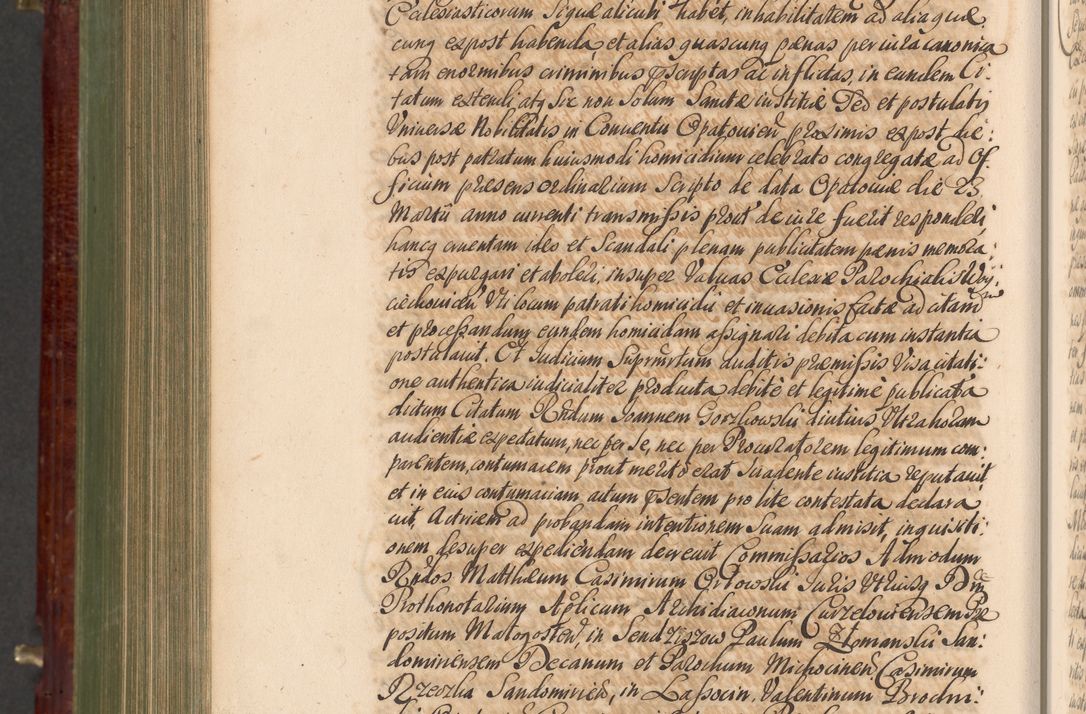 Ecclesiasticorum siquae aliculi habet, inhabilitatem ad alia quae
cunq ex post habenda, et alias quascunq paenas per iura canonica
tam enormibus criminibus pscriptas ac inflictas, in eundem Ci:
tatum extendi, atq sic non solum Sanctae iustitiae Sed et postulatis
Universae Nobilitatis in Conventu Opatovien, proximis ex post die:
bus post patratum huiusmodi homicidium celebrato congregatae ad Of:
ficium praesens ordinarium Scripto de data Opatoviae die 23
Martii anno currenti transmissis prout de iure fuerit responderi
hancq cruentam ideo et Scandali plenam publicitatem paenis memora:
tis expurgari et aboleri, insuper Valvas Ecclesiae Parochialis Woy:
ciechovien Uti locum patrati homicidii et invasionis factae ad citand
et processandum eundem homicidam assignari debita cum instantia
postulavit. Et Iudicium Suprmrtum auditis praemissis Visa citati:
one authentica iudicialiter producta debite et legitime publicata
dictum Citatum Rndum Joannem Gorzkowski diutius Ultra horam
audientiae expectatum, nec per Se, nec per Procuratorem legitimum com:
parentem, contumacem prout merito erat Suadente iustitia reputavit
et in eius contumaciam, actum psentem pro lite contestata declara
vit, Actricem ad probandam intentionem Suam admisit, inquisiti:
onem desuper expediendam decrevit Commissarios Admodum
Rndos Matthaeum Casimirum Orlowski Iuris Utriusq Drm
Prothonotarium Aplicum Archidiaconum Curzeloviensem Prae
positum Malogosten, in Sendziszow Paulum Zlomanski San:
domiriensem Decanum et Parochum Michocinen Casimirum
Rzeczka Sandomirien, in Lassocin, Valentinum Brodni: